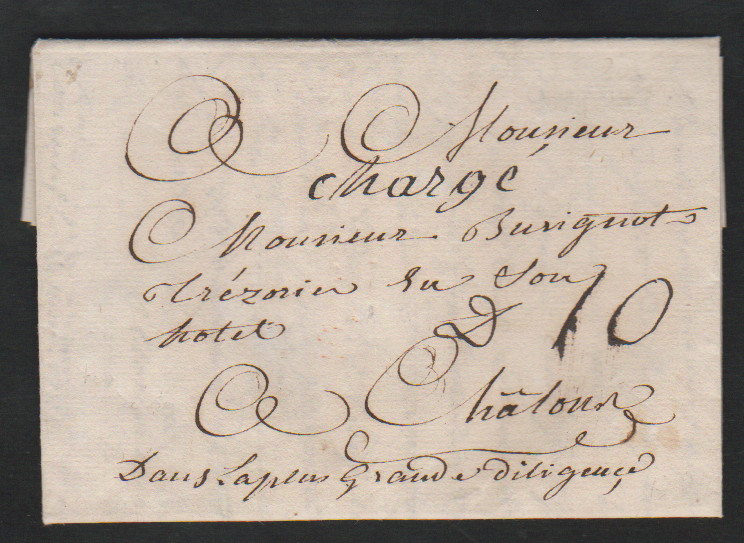 A Monsieur
chargé
Monsieur Burignot
Trézorier En Son
hotel D 10
A Châlons
Dans Laplus Grande diligence